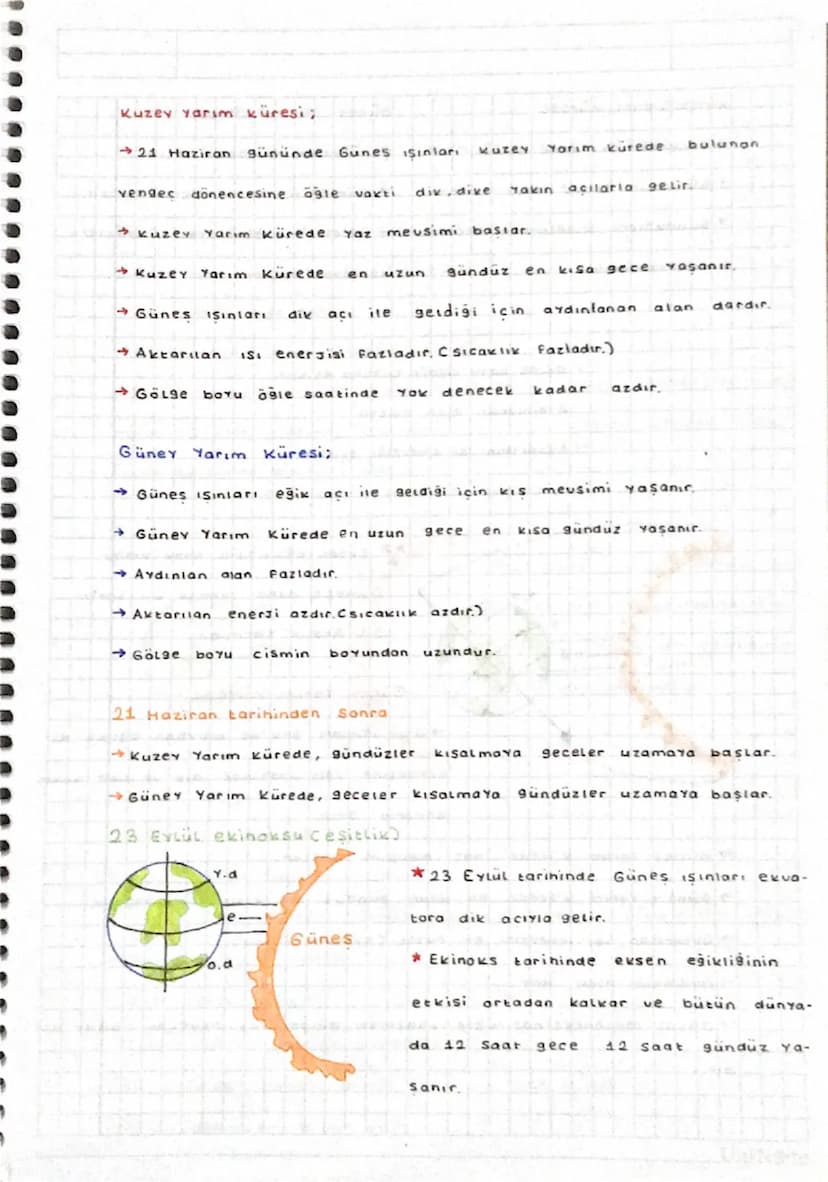 Kuzey Yarım Küresi;
→ 21 Haziran gününde Güneş ışınları Kuzey Yarım kürede bulunan
Yengeç dönencesine öğle vakti dik, dike yakın açılarla gelir.
→ Kuzey Yarım Kürede yaz mevsimi başlar.
→ Kuzey Yarım Kürede en uzun gündüz en kısa gece yaşanır.
→ Güneş ışınları dik açı ile geldiği için aydınlanan alan dardır.
→ Aktarılan ısı enerjisi fazladır. (sıcaklık fazladır.)
→ Gölge boyu öğle saatinde yok denecek kadar azdır.
Güney Yarım Küresi;
→ Güneş ışınları eğik açı ile geldiği için kış mevsimi yaşanır.
→ Güney Yarım Kürede en uzun gece en kısa gündüz yaşanır.
→ Aydınlan alan fazladır.
→ Aktarılan enerji azdır. (sıcaklık azdır.)
→ Gölge boyu cismin boyundan uzundur.
21 Haziran tarihinden Sonra
→ Kuzey Yarım kürede, gündüzler kısalmaya geceler uzamaya başlar.
→ Güney Yarım Kürede, geceler kısalmaya gündüzler uzamaya başlar.
23 Eylül ekinoksu (eşitlik)
Y.d
e
o.d
Güneş
* 23 Eylül tarihinde Güneş ışınları ekva-
tora dik acıyla gelir.
* Ekinoks tarihinde eksen eğikliğinin
etkisi ortadan kalkar ve bütün dünya-
da 12 Saat gece 12 saat gündüz ya-
şanır.